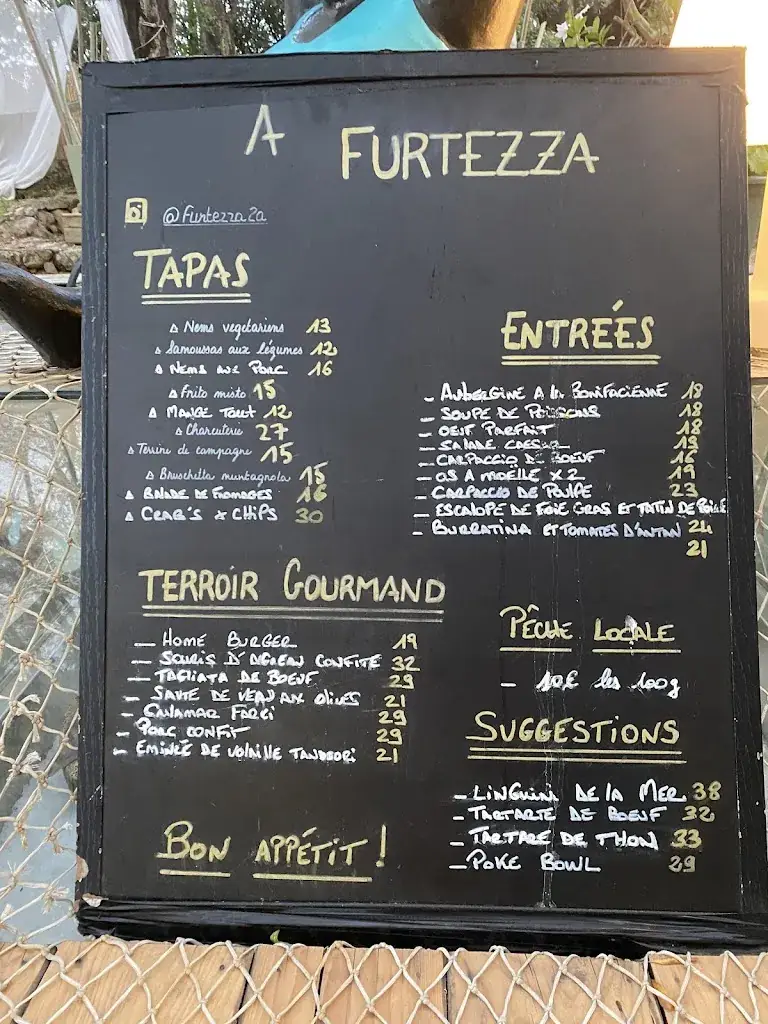 A FURTEZZA
@Furtezza2a
TAPAS
Nems vegetariens 13
Samoussas aux légumes 12
NEMS AUX PORC 16
Frito misto 15
MANGE TOUT 12
Charcuterie 27
Terrine de campagne 15
Bruschetta muntagnola 15
BALADE DE FROMAGES 16
CRAB'S & CHIPS 30
ENTRÉES
- AUBERGINE A LA BONIFACIENNE 18
- SOUPE DE POISSONS 18
- OEUF PARFAIT 18
- SALADE CAESAR 19
- CARPACCIO DE BOEUF 16
- OS A MOELLE X 2 19
- CARPACCIO DE POULPE 23
- ESCALOPE DE FOIE GRAS ET TATIN DE POIRE
24
- BURRATINA ET TOMATES D'ANTAN
21
TERROIR GOURMAND
- HOME BURGER 19
- SOURIS D'AGNEAU CONFITE 32
- TAGLIATA DE BOEUF 29
- SAUTE DE VEAU AUX OLIVES 21
- CALAMAR FARCI 29
- PORC CONFIT 29
- EMINCÉ DE VOLAILLE TANDOORI 21
PÊCHE LOCALE
- 10€ les 100g
SUGGESTIONS
- LINGUINI DE LA MER 38
- TARTARTE DE BOEUF 32
- TARTARE DE THON 33
- POKE BOWL 29
BON APPÉTIT !